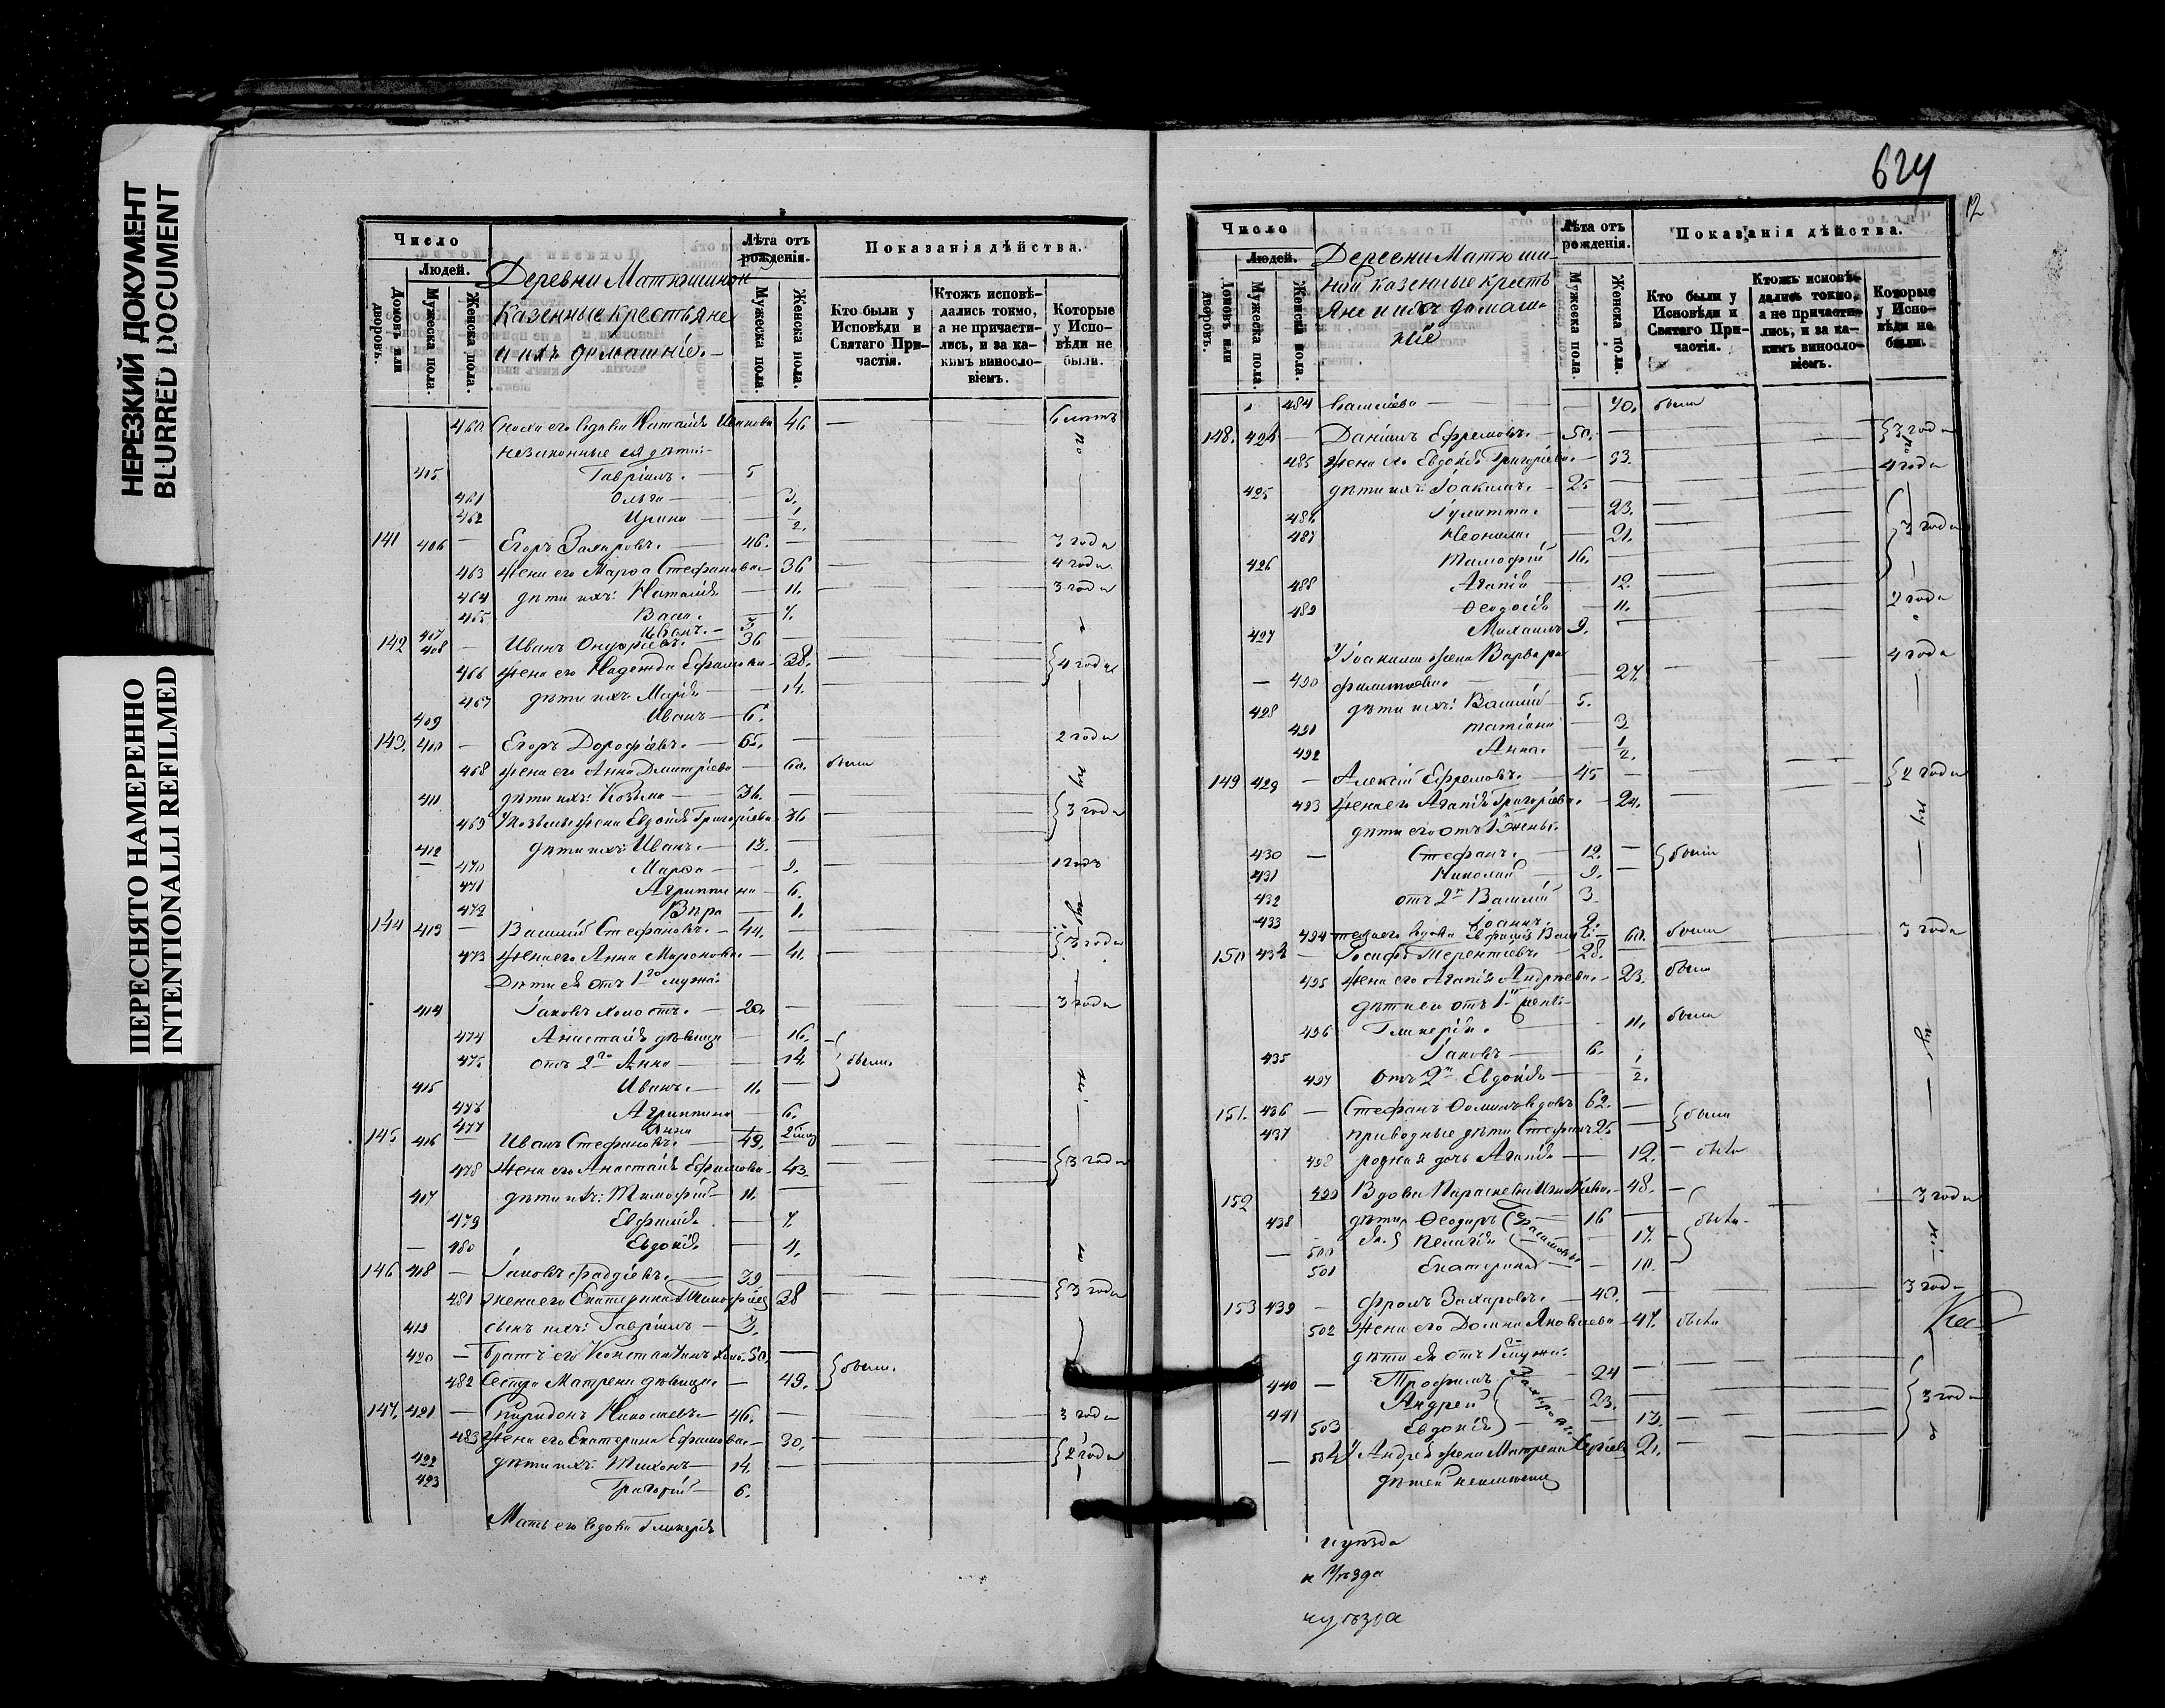 НЕРЕЗКИЙ ДОКУМЕНТ
BLURRED DOCUMENT
ПЕРЕСНЯТО НАМЕРЕННО
INTENTIONALLI REFILMED
Число
Людей.
Домовъ или дворовъ.
Мужеска пола.
Женска пола.
Деревни Матюшиной
Казенные крестьяне
и ихъ домашніе.
Лѣта отъ рожденія.
Мужеска пола.
Женска пола.
Показанія дѣйства.
Кто были у Исповѣди и Святаго Причастія.
Ктожъ исповѣдались токмо, а не причастились, и за какимъ винословіемъ.
Которые у Исповѣди не были.
460 Сноха его вдова Наталія Иванова 46 6 лѣтъ
незаконные ея дѣти:
405 Гавріилъ. 5
461 Ольга 3.
462 Ирина 1/2.
141 406 Егоръ Захаровъ. 46. 3 года
463 жена его Марѳа Стефанова 36 4 года
464 дѣти ихъ: Наталія 11. 3 года
465 Васа. 7.
407 Иванъ. 3
142 408 Иванъ Онуфріевъ. 36
466 жена его Надежда Ефимова 38. 4 года
467 дѣти ихъ Марія 14.
409 Иванъ 6.
143. 410 Егоръ Дорофіевъ. 65. 2 года
468 жена его Анна Дмитріева 60. были
411 дѣти ихъ: Козьма 36.
469 Козьмы жена Евдокія Григоріева 36. 3 года
412 дѣти ихъ: Иванъ. 13.
470 Марѳа 9. 1 годъ
471 Агриппина 6.
472 Вѣра 1.
144 413 Василій Стефановъ. 44. 3 года
473 жена его Анна Миронова 41.
Дѣти ея отъ 1го мужа:
414 Іаковъ холостъ. 20. 3 года
474 Анастасія дѣвица 16.
475 отъ 2го Анна 14. были.
415 Иванъ. 11.
476 Агриппина 6.
477 Анна
145 416 Иванъ Стефановъ. 49.
478 жена его Анастасія Ефимова 43. 3 года
417 дѣти ихъ: Тимофій 11.
479 Евфимія 7.
480 Евдокія 4.
146 418 Іаковъ Фаддіевъ. 39
481 жена его Екатерина Тимофіева 38 3 года
419 сынъ ихъ: Гавріилъ 3.
420 Братъ его Константинъ холо. 50.
482 Сестра Матрена дѣвица 49. были.
147. 421 Спиридонъ Николаевъ 46. 3 года
483 жена его Екатерина Ефимова 30.
422 дѣти ихъ: Тихонъ 14. 2 года
423 Григорій 6.
Мать его вдова Гликерія
624
12
Число
Людей.
Домовъ или дворовъ.
Мужеска пола.
Женска пола.
Деревни Матюши-
ной казенные кресть
яне и ихъ домаш-
ніе
Лѣта отъ рожденія.
Мужеска пола.
Женска пола.
Показанія дѣйства.
Кто были у Исповѣди и Святаго Причастія.
Ктожъ исповѣдались токмо, а не причастились, и за какимъ винословіемъ.
Которые у Исповѣди не были.
484 Василіева 70. были
148. 424 Даніилъ Ефремовъ. 50. 3 года
485 жена его Евдокія Григоріева 53. 4 года
425 дѣти ихъ: Іоакимъ. 25
486 Іулитта. 23.
487 Неонила. 21. 3 года
426 Тимофій 16.
488 Агапія 12.
489 Ѳеодосія 11. 2 года
427 Михаилъ 9.
У Іоакима жена Варвара 4 года
490 Филиппова 27.
428 дѣти ихъ: Василій 5.
491 Татіана 3
492 Анна. 1/2.
149 429 Алексій Ефремовъ. 45 2 года
493 жена его Агапія Григоріева. 24.
дѣти его отъ 1й жены.
430 Стефанъ. 12. были
431 Николай 9.
432 отъ 2й Василій 3
433 Іоаннъ. 2.
494 теща его вдова Евфимія 60. были 3 года
150 434 Іосифъ Терентіевъ 28.
495 жена его Агапія Андреева. 23. были
дѣти его отъ 1й жены
496 Гликерія. 11. были
435 Іаковъ 6.
497 отъ 2й Евдокія 1/2.
151. 436 Стефанъ Ѳоминъ вдовъ 62. были
437 приводные дѣти Стефанъ 25
498 родная дочь Агапія 12. была
152 499 Вдова Параскева Игнатіева 48. 3 года
438 дѣти Ѳеодоръ 16 были
500 ея Пелагія 17.
501 Екатерина 10.
Герасимовы
153 439 Фролъ Захаровъ. 40. 3 года
502 жена его Домна Яковлева 47. была
дѣти ея отъ 1 мужа:
440 Трофимъ 24
441 Андрей 23. 3 года
503 Евдокія 13.
Захаровы
504 У Андрея жена Матрена Сергіева 21.
дѣтей неимѣющ
и уѣзда
и уѣзда
и уѣзда